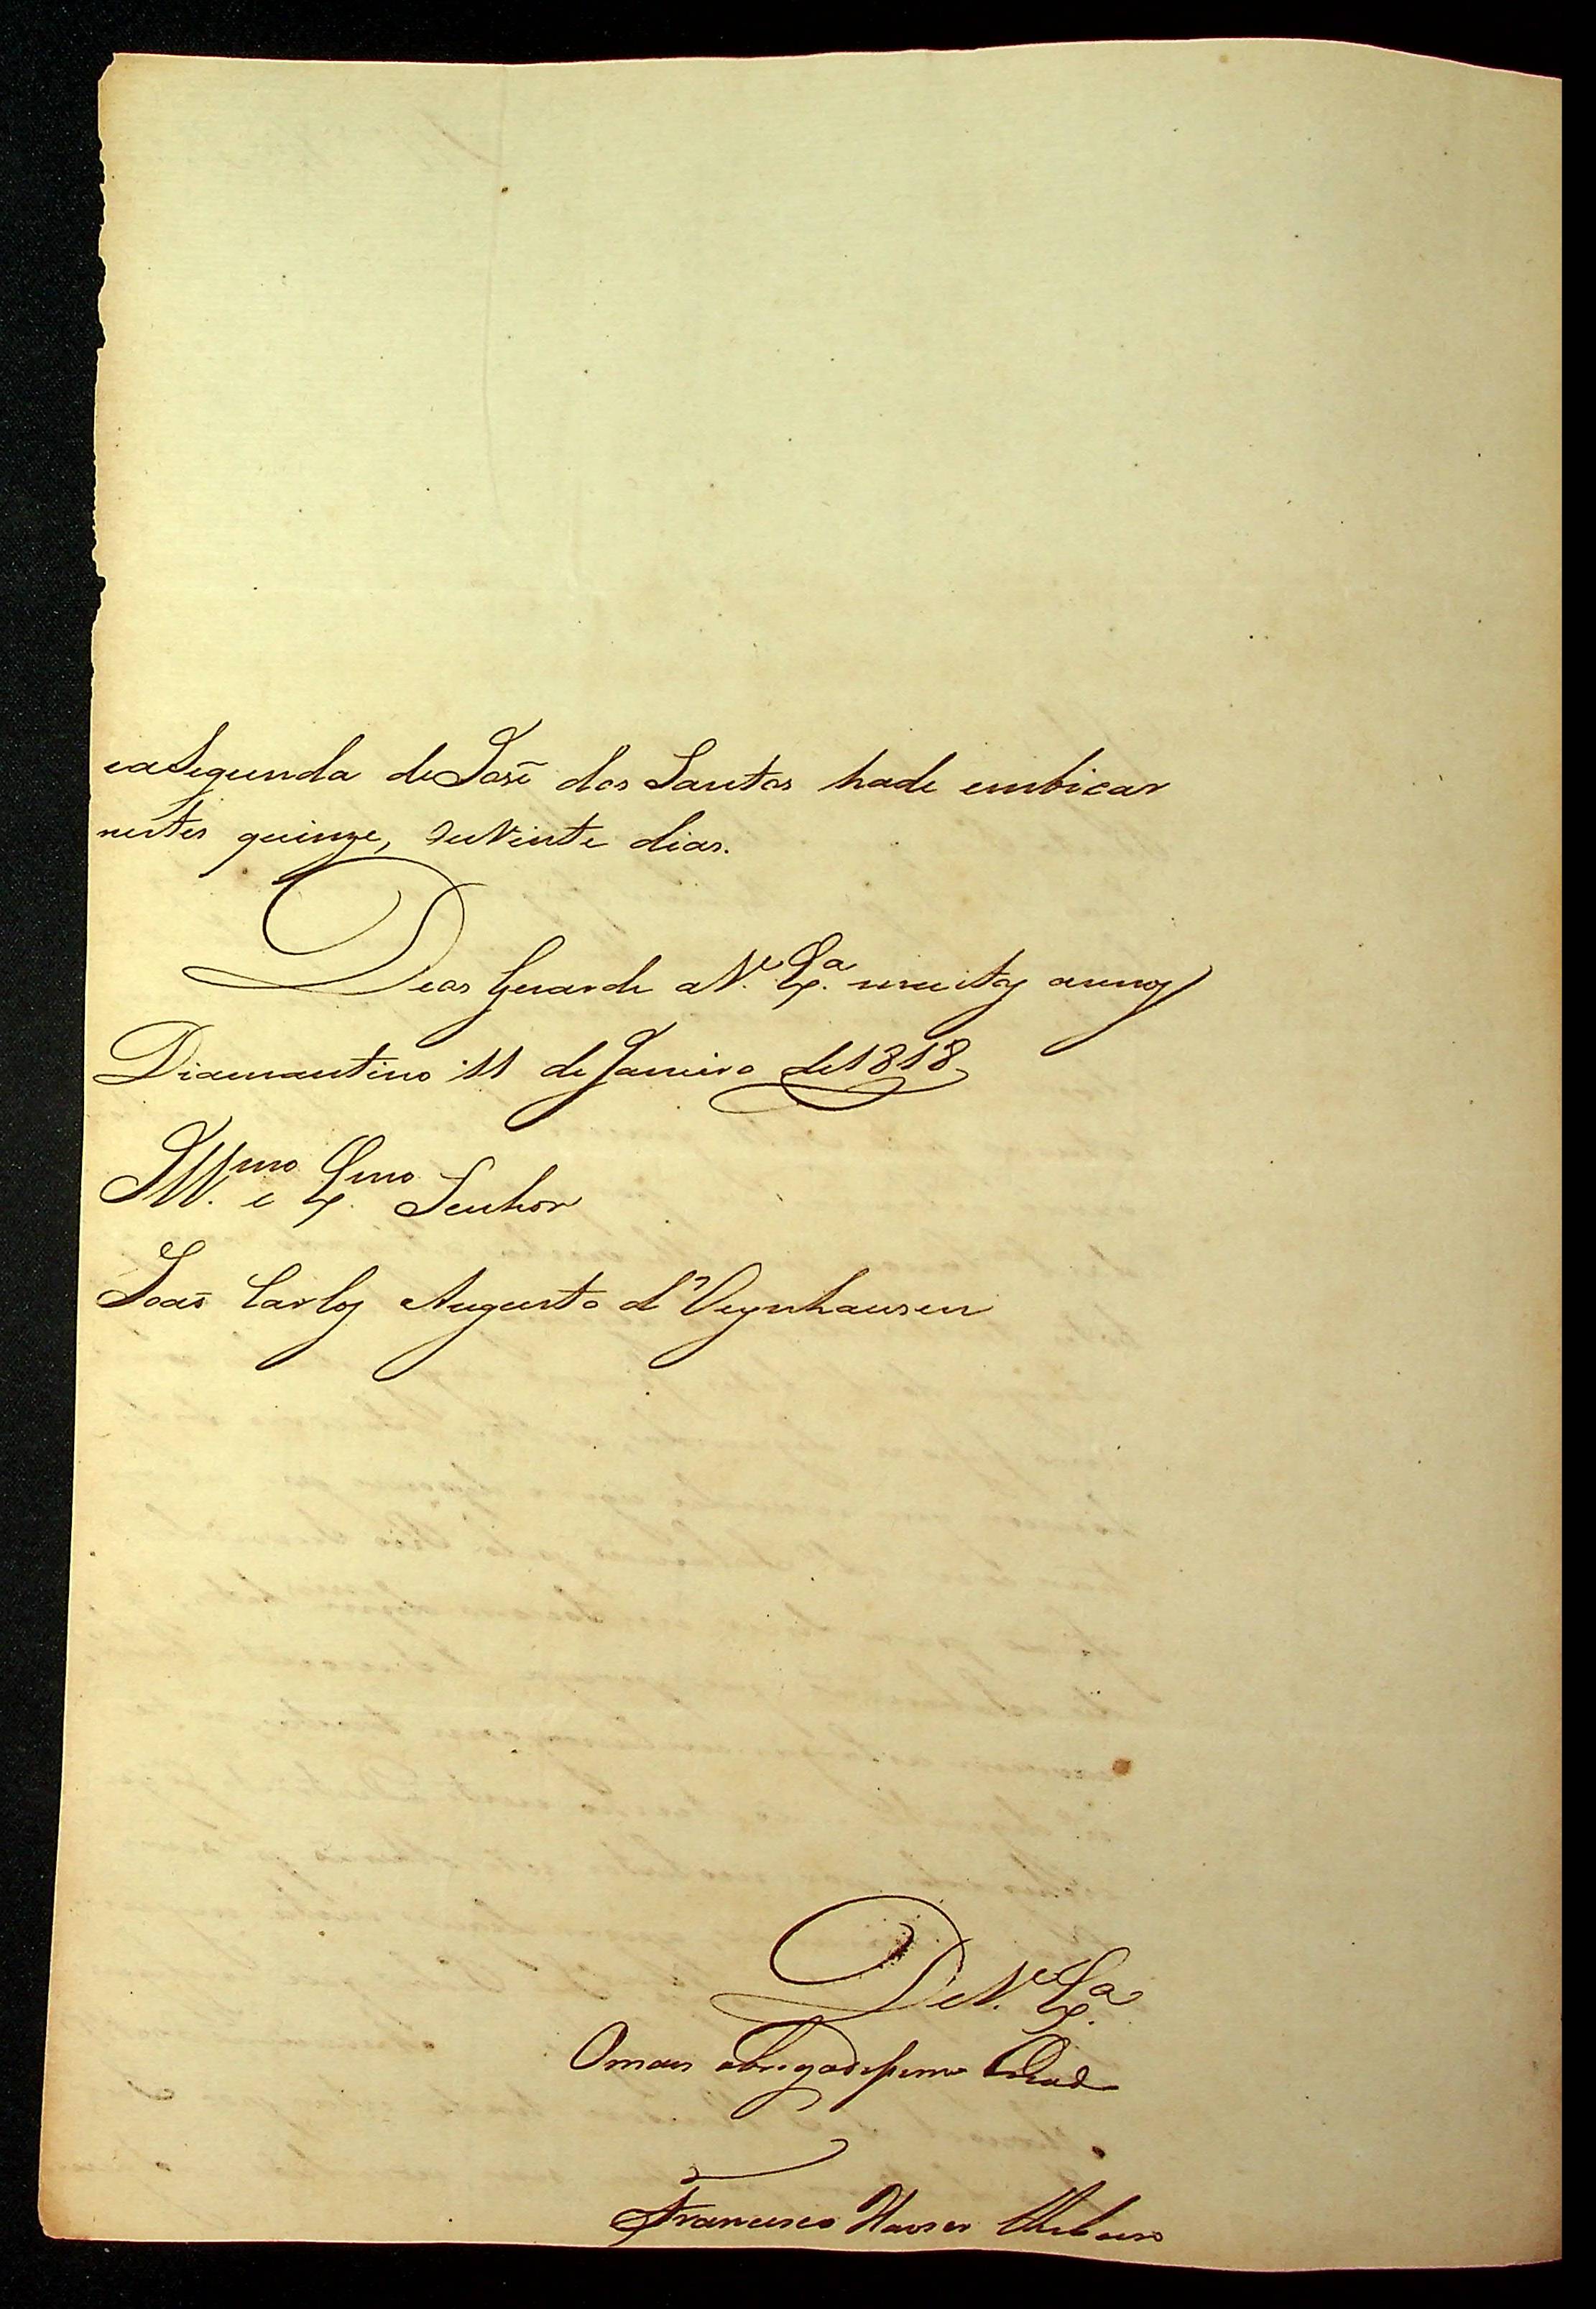 ea Segunda de José dos Santos hade embicar
nestes quinze, ou Vinte dias.
Deos Guarde a V.ᵉ Ex.ᵃ muitos annos
Diamantino 11 de Janeiro de 1818
Ill.ᵐᵒ e Ex.ᵐᵒ Senhor
João Carlos Augusto d'Oeynhausen
De V.ᵉ Ex.ᵃ
Omais obrigadissimo Criado
Francisco Xavier